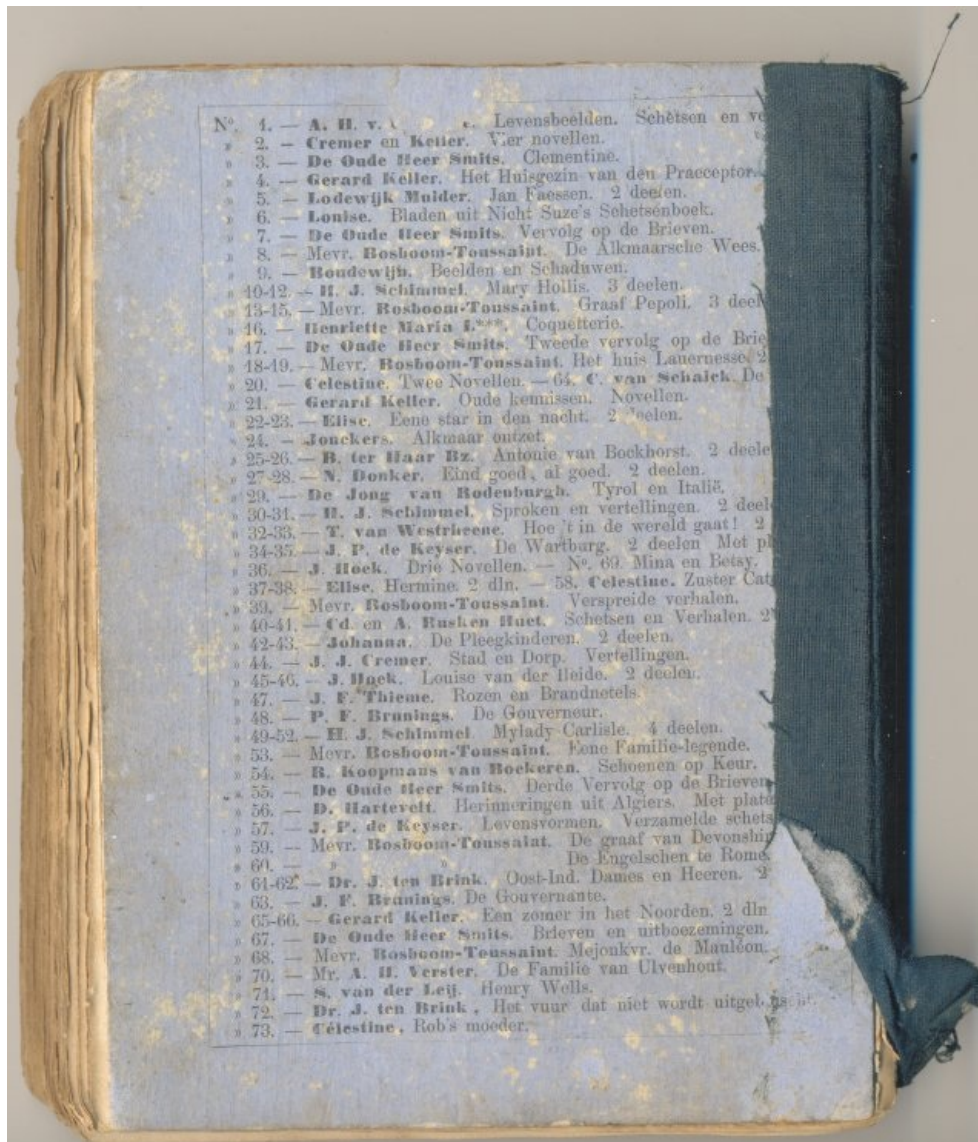 Nº. 1. — A. H. v. Levensbeelden. Schetsen en
» 2. — Cremer en Keller. Vier novellen.
» 3. — De Oude Heer Smits. Clementine.
» 4. — Gerard Keller. Het Huisgezin van den Praeceptor.
» 5. — Lodewijk Mulder. Jan Faessen. 2 deelen.
» 6. — Louise. Bladen uit Nicht Suze's Schetsenboek.
» 7. — De Oude Heer Smits. Vervolg op de Brieven.
» 8. — Mevr. Bosboom-Toussaint. De Alkmaarsche Wees.
» 9. — Boudewijn. Beelden en Schaduwen.
» 10-12. — H. J. Schimmel. Mary Hollis. 3 deelen.
» 13-15. — Mevr. Bosboom-Toussaint. Graaf Pepoli. 3 deel
» 16. — Henriette Maria L***. Coquetterie.
» 17. — De Oude Heer Smits. Tweede vervolg op de Brie
» 18-19. — Mevr. Bosboom-Toussaint. Het huis Lauernesse. 2
» 20. — Celestine. Twee Novellen. — 64. C. van Schaick. De
» 21. — Gerard Keller. Oude kennissen. Novellen.
» 22-23. — Elise. Eene star in den nacht. 2 deelen.
» 24. — Jonckers. Alkmaar ontzet.
» 25-26. — B. ter Haar Bz. Antonie van Bockhorst. 2 deele
» 27-28. — N. Donker. Eind goed, al goed. 2 deelen.
» 29. — De Jong van Rodenburgh. Tyrol en Italië.
» 30-31. — H. J. Schimmel. Sproken en vertellingen. 2 deel
» 32-33. — T. van Westrheene. Hoe 't in de wereld gaat! 2
» 34-35. — J. P. de Keyser. De Wartburg. 2 deelen Met pl
» 36. — J. Hoek. Drie Novellen. — Nº. 69. Mina en Betsy.
» 37-38. — Elise. Hermine. 2 dln. — 58. Celestine. Zuster Cat
» 39. — Mevr. Bosboom-Toussaint. Verspreide verhalen.
» 40-41. — Cd. en A. Busken Huet. Schetsen en Verhalen. 2
» 42-43. — Johanna. De Pleegkinderen. 2 deelen.
» 44. — J. J. Cremer. Stad en Dorp. Vertellingen.
» 45-46. — J. Hoek. Louise van der Heide. 2 deelen.
» 47. — J. F. Thieme. Rozen en Brandnetels.
» 48. — P. F. Brunings. De Gouverneur.
» 49-52. — H. J. Schimmel. Mylady Carlisle. 4 deelen.
» 53. — Mevr. Bosboom-Toussaint. Eene Familie-legende.
» 54. — R. Koopmans van Boekeren. Schoenen op Keur.
» 55. — De Oude Heer Smits. Derde Vervolg op de Brieven
» 56. — D. Hartevelt. Herinneringen uit Algiers. Met plate
» 57. — J. P. de Keyser. Levensvormen. Verzamelde schets
» 59. — Mevr. Bosboom-Toussaint. De graaf van Devonshir
» 60. — » » De Engelschen te Rome.
» 61-62. — Dr. J. ten Brink. Oost-Ind. Dames en Heeren. 2
» 63. — J. F. Brunings. De Gouvernante.
» 65-66. — Gerard Keller. Een zomer in het Noorden. 2 dln
» 67. — De Oude Heer Smits. Brieven en uitboezemingen.
» 68. — Mevr. Bosboom-Toussaint. Mejonkvr. de Mauléon.
» 70. — Mr. A. H. Verster. De Familie van Ulvenhout.
» 71. — S. van der Leij. Henry Wells.
» 72. — Dr. J. ten Brink, Het vuur dat niet wordt
» 73. — Célestine, Rob's moeder.